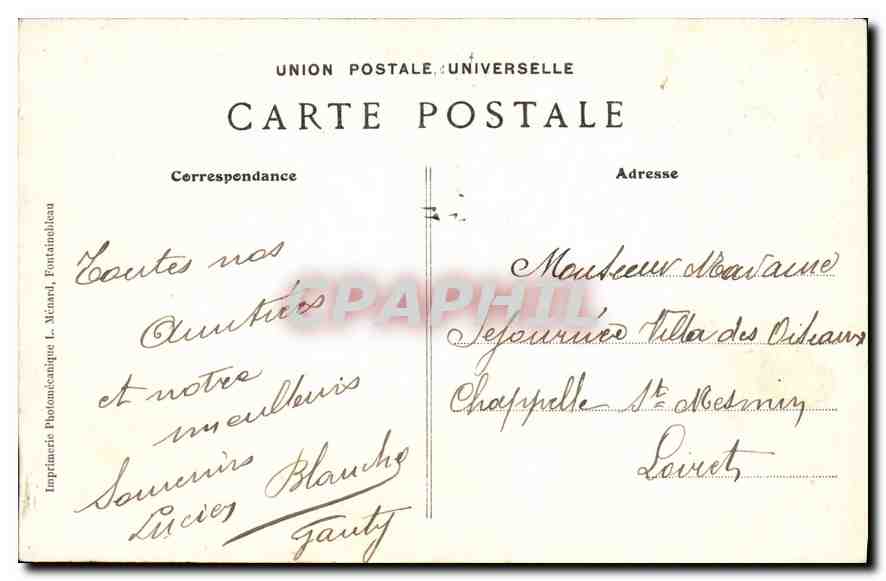 UNION POSTALE UNIVERSELLE
CARTE POSTALE
Correspondance
Adresse
Imprimerie Photomécanique L. Ménard, Fontainebleau
Toutes nos
Amitiées
et notre
meilleurs
Souvenirs
Lucien Blanche
Gauty
Monsieur Madame
Sejournée Villa des Oiseaux
Chappelle St Mesmin
Loiret
CPAPHIL